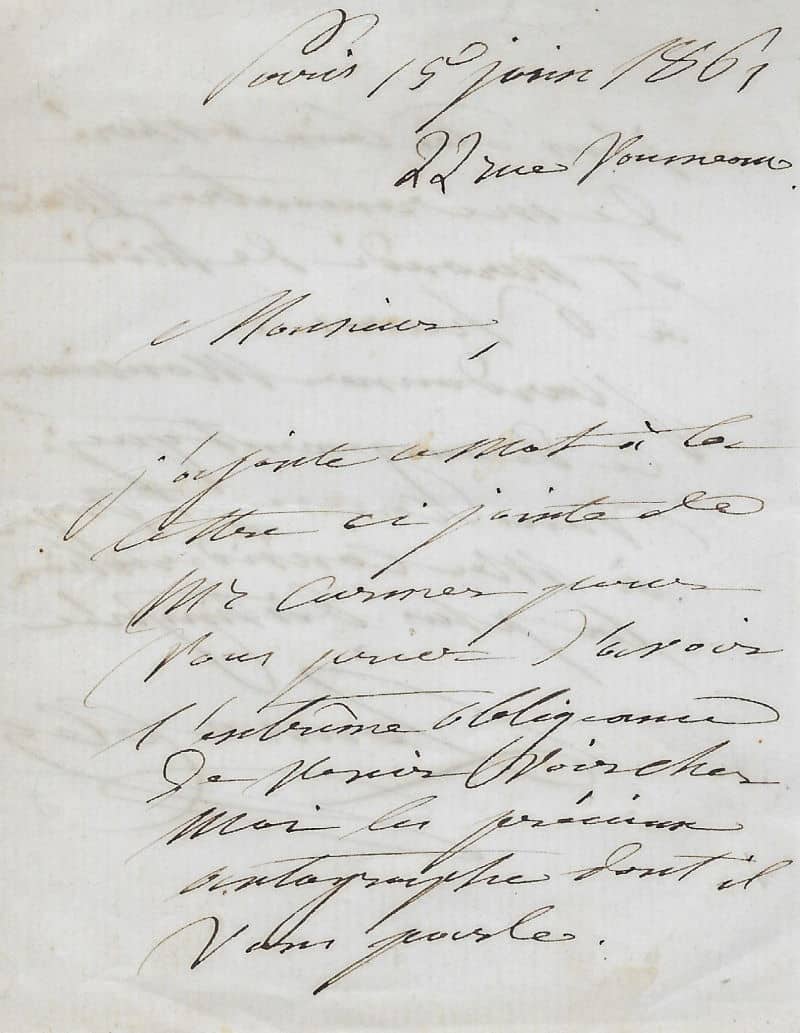 Paris 15 juin 1861
22 rue Vonneau.
Monsieur,
j'ajoute ce mot à la
lettre ci jointe de
Mr Curmer pour
Vous prier d'avoir
l'extrême obligeance
de venir voir chez
moi les précieux
autographe dont il
Vous parle.